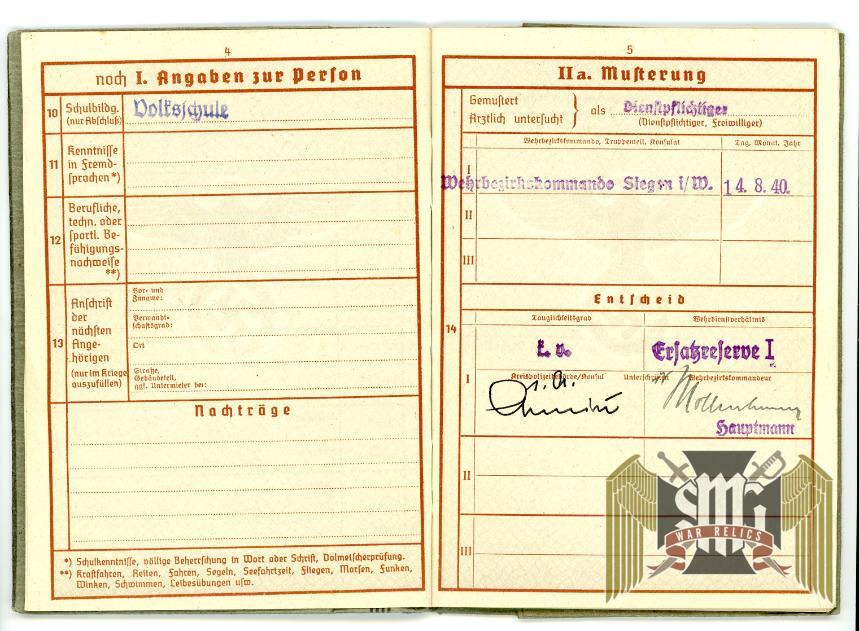 4
noch I. Angaben zur Person
10 Schulbildg. (nur Abschluß) Volksschule
11 Kenntnisse in Fremd-
sprachen*)
12 Berufliche,
techn. oder
sportl. Be-
fähigungs-
nachweise
**)
13 Anschrift
der
nächsten
Ange-
hörigen
(nur im Kriege
auszufüllen)
Vor- und
Zuname:
Verwandt-
schaftsgrad:
Ort
Straße,
Gebäudeteil,
ggf. Untermieter bei:
Nachträge
*) Schulkenntnisse, völlige Beherrschung in Wort oder Schrift, Dolmetscherprüfung.
**) Kraftfahren, Reiten, Fahren, Segeln, Seefahrtzeit, Fliegen, Morsen, Funken,
Winken, Schwimmen, Leibesübungen usw.
5
IIa. Musterung
Gemustert
Ärztlich untersucht } als Dienstpflichtiger
(Dienstpflichtiger, Freiwilliger)
Wehrbezirkskommando, Truppenteil, Konsulat Tag, Monat, Jahr
I
Wehrbezirkskommando Siegen i/W. 14. 8. 40.
II
III
Entscheid
14
Tauglichkeitsgrad Wehrdienstverhältnis
k. v. Ersatzreserve I
I Kreispolizeibehörde/Konsul Unterschriften Wehrbezirkskommandeur
Hauptmann
II
III
SMGJ
WAR RELICS